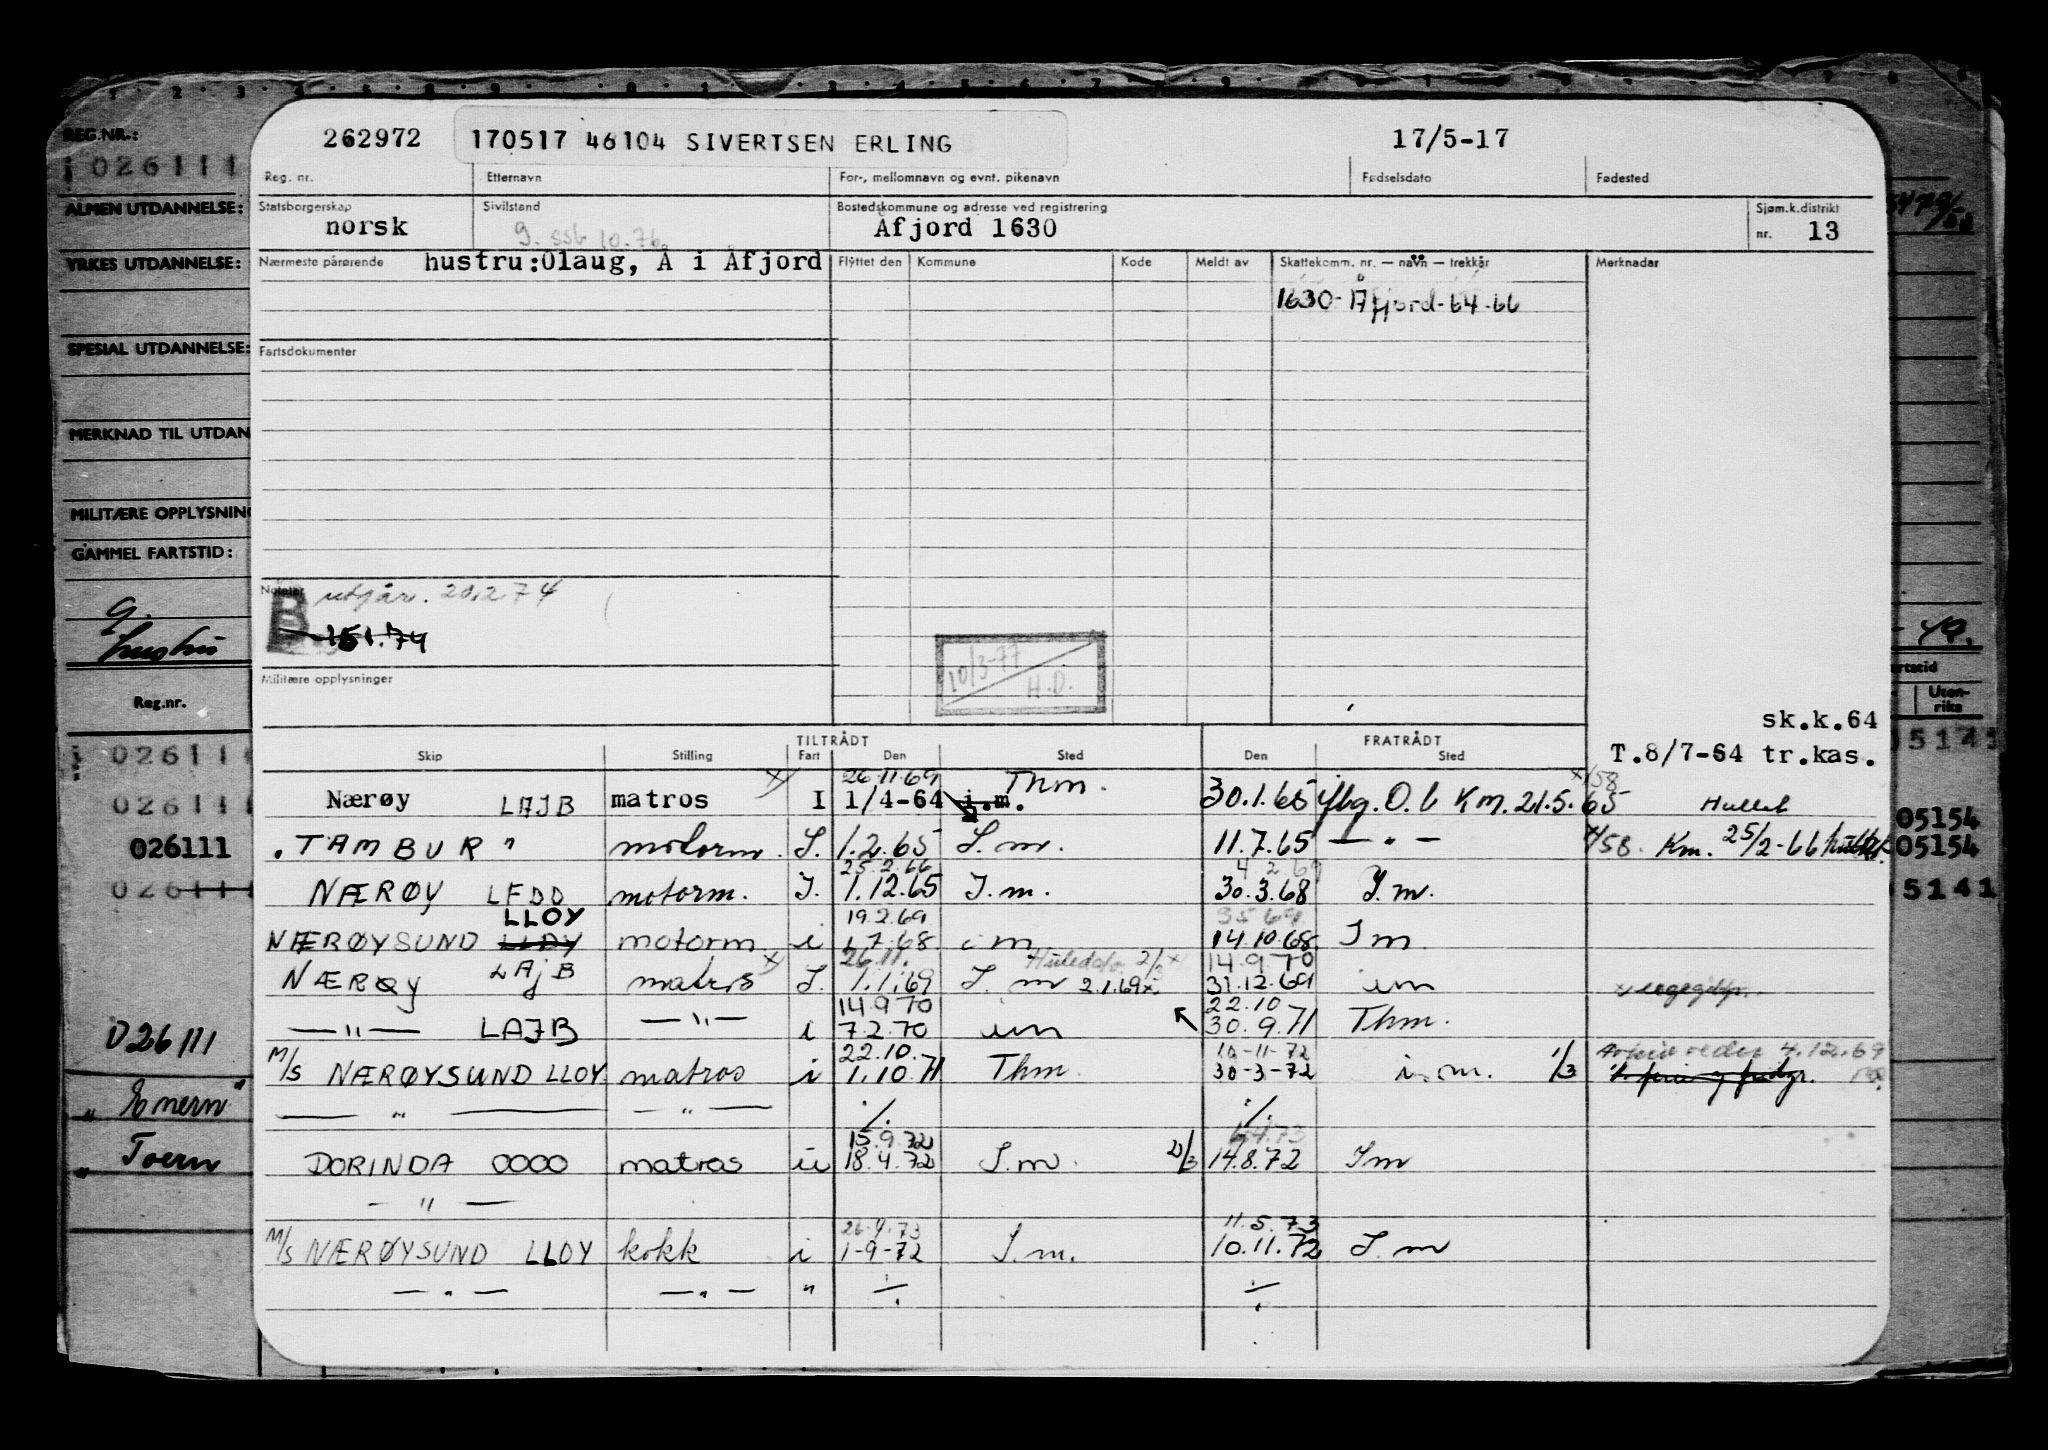 REG.NR.:
026111
ALMEN UTDANNELSE:
YRKES UTDANNELSE:
SPESIAL UTDANNELSE:
MERKNAD TIL UTDAN
MILITÆRE OPPLYSNING
GAMMEL FARTSTID:
g.
hustru
Reg.nr.
026111
026111
026111
026111
026111
"Enern"
"Toern
262972 170517 46104 SIVERTSEN ERLING 17/5-17
Reg. nr. Etternavn For-, mellomnavn og evnt. pikenavn Fødselsdato Fødested
Statsborgerskap Sivilstand Bostedskommune og adresse ved registrering Sjøm.k.distrikt
norsk g. ssb 10.76 Åfjord 1630 nr. 13
Nærmeste pårørende hustru:Olaug, Å i Åfjord Flyttet den Kommune Kode Meldt av Skattekomm. nr. — navn — trekkår Merknader
1630-Åfjord-64-66
Fartsdokumenter
Notater
B utgår. 20.2.74
151.74
10/3-77
H.D.
Militære opplysninger
sk.k.64
T.8/7-64 tr.kas.
TILTRÅDT FRATRÅDT
Skip Stilling Fart Den Sted Den Sted
26.11.69 Thm.
Nærøy LAJB matros I 1/4-64 i.m. 30.1.65 Km. 21.5.65
"TAMBUR" motorm. I. 1.2.65 I.m. 11.7.65 — " — 4/58. Km. 25/2-66
25.2.66 4 2 69
NÆRØY LFDD motorm. I. 1.12.65 I.m. 30.3.68 I.m.
LLOY 19.2.69 3 5 69
NÆRØYSUND LLDY motorm i 1.7.68 i m 14.10.68 I m
26.11. 14.9 70
NÆRØY LAJB matros I. 1.1.69 I.m 2.1.69 31.12.69 im
14.9.70 22.10
— " — LAJB — " — i 7.2.70 im 30.9.71 Thm.
22.10. 10-11-72 4.12.69
M/S NÆRØYSUND LLOY matros i 1.10.71 Thm. 30-3-72 i.m. 1/3
— " — — " — ./. ./.
15.9.72 6.4.73
DORINDA OOOO matros u 18.4.72 I.m. 14.8.72 I m
— " —
26.4.73 11.5.73
M/S NÆRØYSUND LLOY kokk i 1-9-72 I.m. 10.11.72 I.m
— " — — " — " ./. ./.
40.
rtstid
Uten-
riks
05141
05154
05154
05141